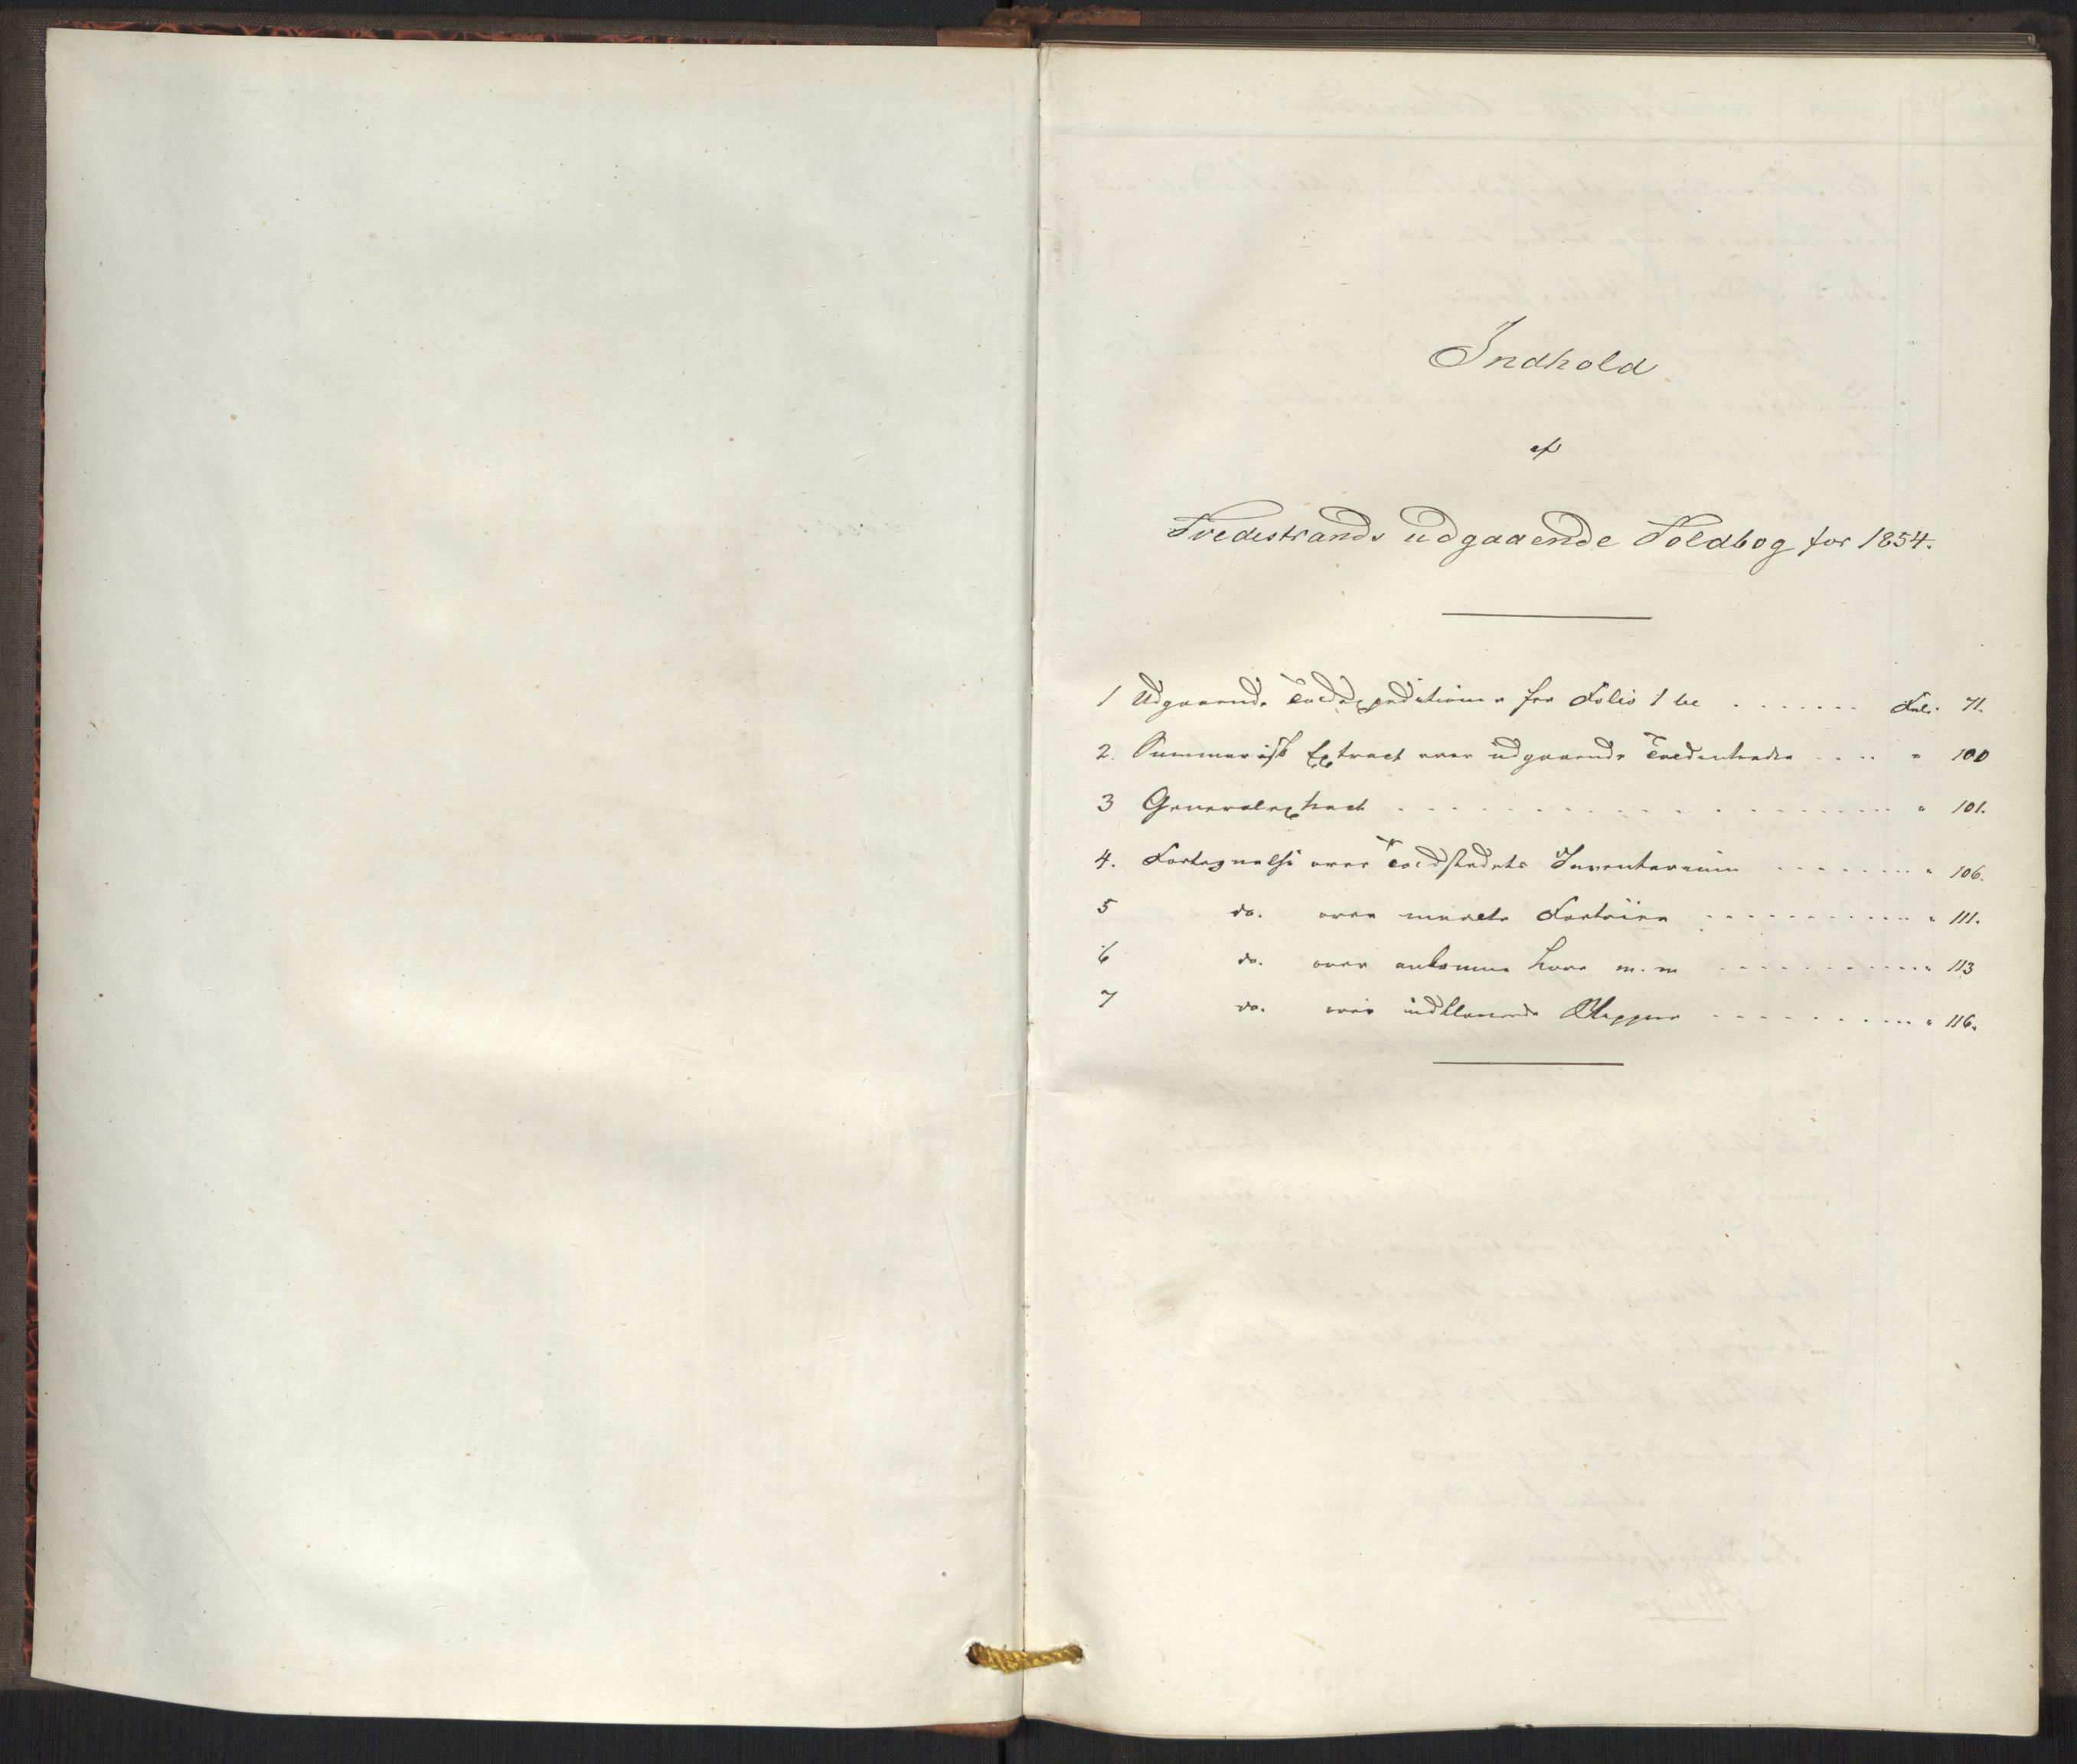 Indhold
af
Tvedestrands udgaaende Toldbog for 1854.
1 Udgaaende Toldexpeditioner fra Folio 1 til ....... Fol. 71.
2. Summarisk Extract over udgaaende Toldintrader .... " 100
3 Generalextract .................... " 101.
4. Fortegnelse over Toldstedets Inventarium ........ " 106.
5 do. over maalte Fartøier ........... " 111.
6 do. over ankomne m. m ........... " 113
7 do. over indklarerede Skippere ........... " 116.